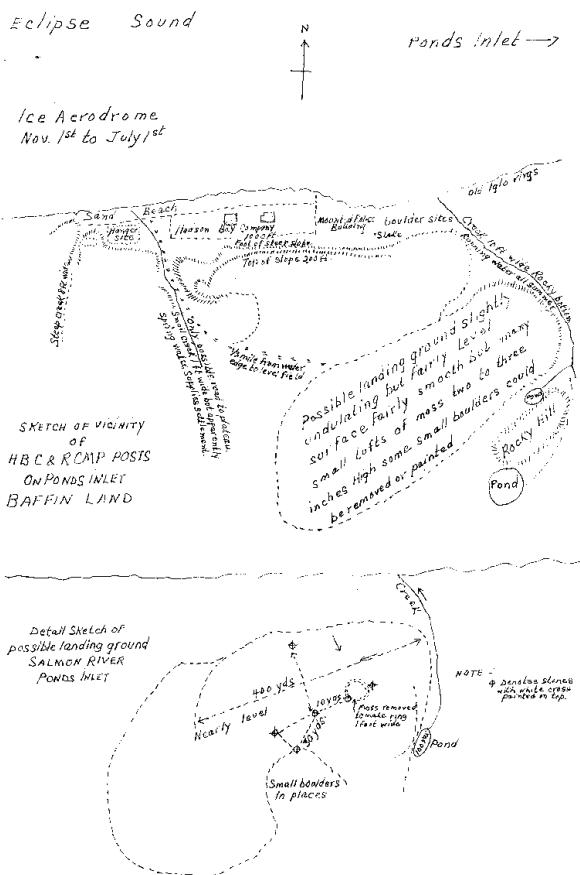 Eclipse Sound
Ponds Inlet →
N
Ice Aerodrome
Nov. 1st to July 1st
Old Iglo rings
Sand Beach
Hangar
site
Hudson Bay Company
1000 ft
Mount d Police
Building
boulder sites
Stake
Foot of steep slope
Top of slope 200 ft
Creek 10 ft wide Rocky bottom
Running water all summer
Steep creek
Small creek 1 ft wide but apparently
spring water. Supplies settlement
Only possible road to plateau
½ mile from water
edge to level field
Possible landing ground slightly
undulating but fairly level
surface fairly smooth but many
small tufts of moss two to three
inches high some small boulders could
be removed or painted
Pond
Rocky Hill
Pond
SKETCH OF VICINITY
OF
HBC & RCMP POSTS
ON PONDS INLET
BAFFIN LAND
Detail Sketch of
possible landing ground
SALMON RIVER
PONDS INLET
Creek
400 yds
Nearly level
10 yds
50 yds
Moss removed
to make ring
1 foot wide
NOTE -
Denotes stones
with white cross
painted on top.
Pond
Small boulders
in places